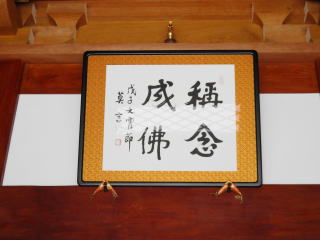 稱念
成佛
戊子大雪節
莫言